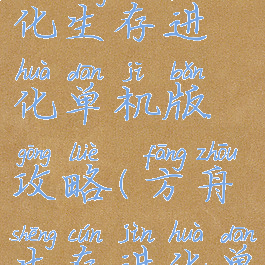 化生存进
huà dān jī bǎn
化单机版
gōng lüè fāng zhōu
攻略(方舟
shēng cún jìn huà dān
生存进化单